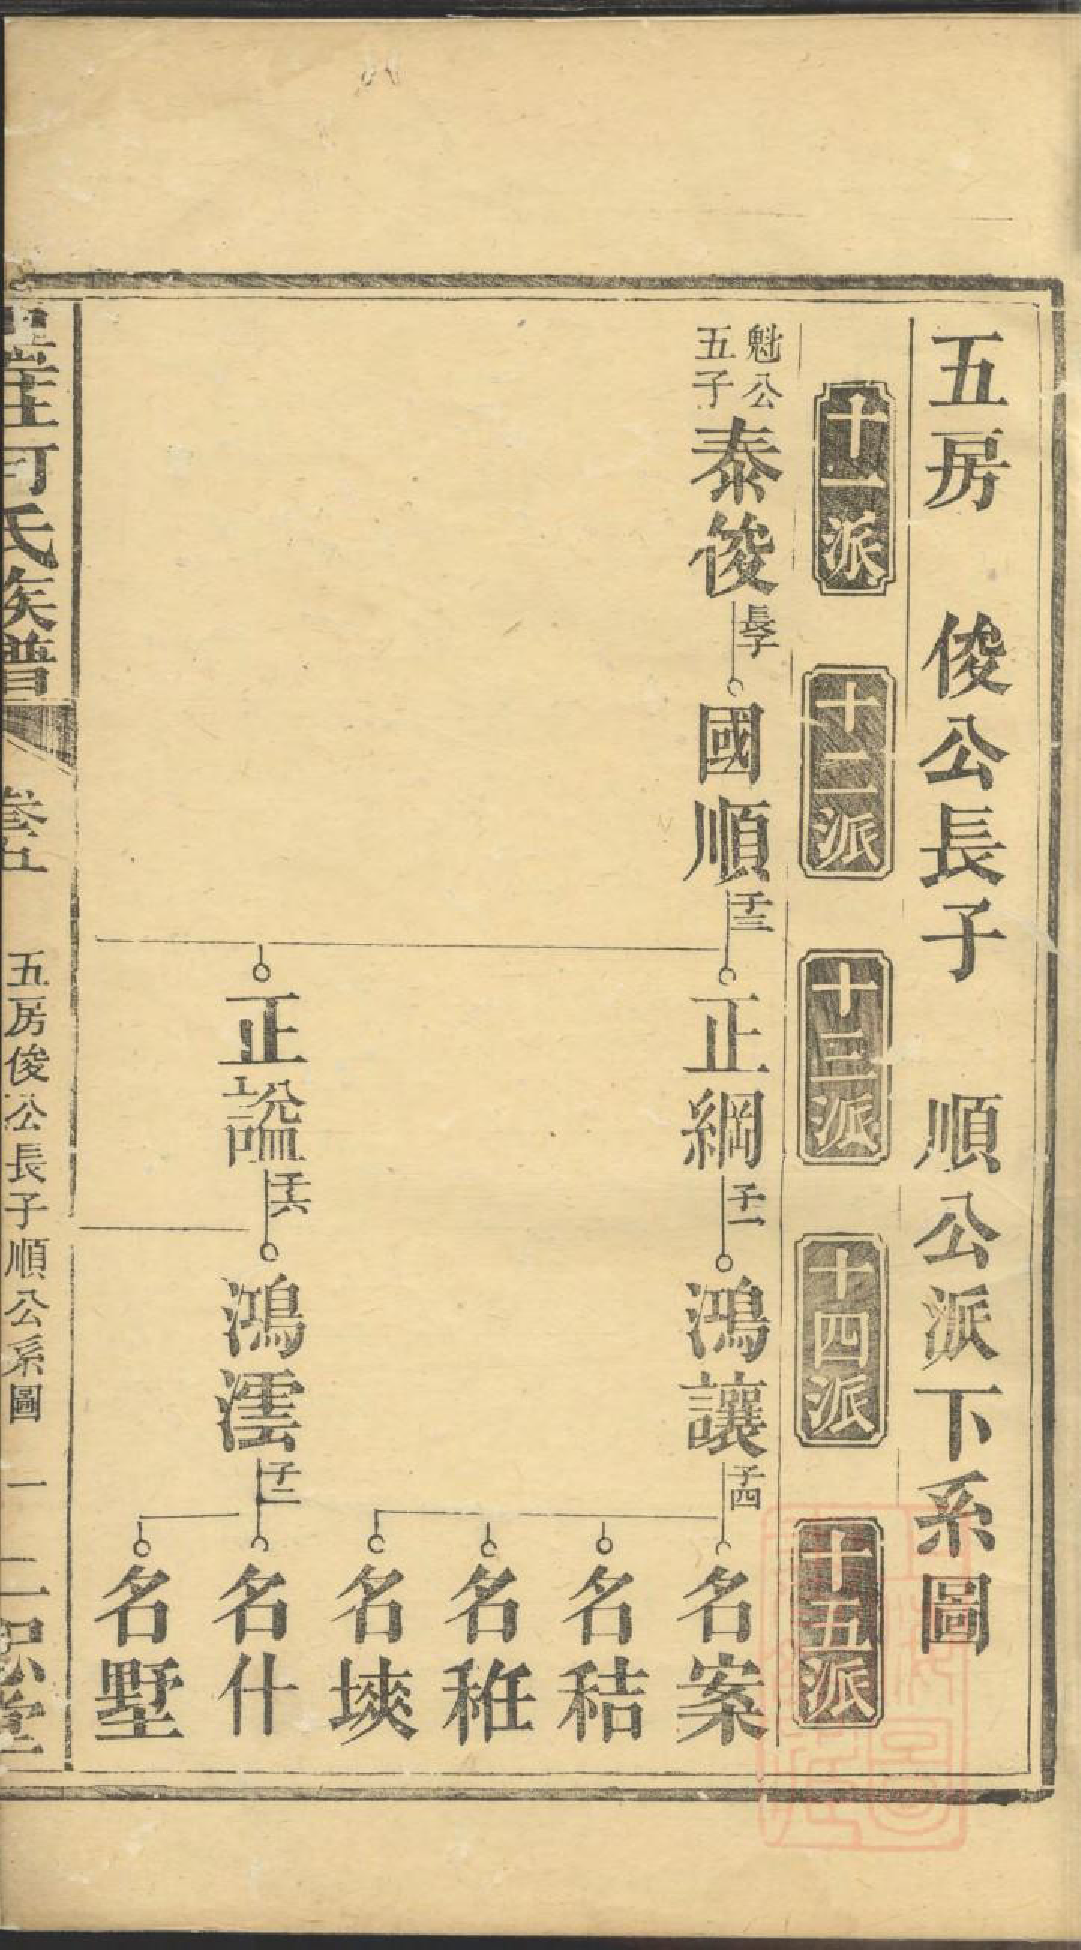 五房 俊公長子 順公派下系圖
十一派
十二派
十三派
十四派
十五派
魁公
五子
泰俊
長子
國順
子三
正綱
子一
鴻讓
子四
名案
名秸
名稚
名塽
正謚
子六
鴻澐
子二
名什
名墅
何氏族譜
卷五
五房俊公長子順公系圖
一